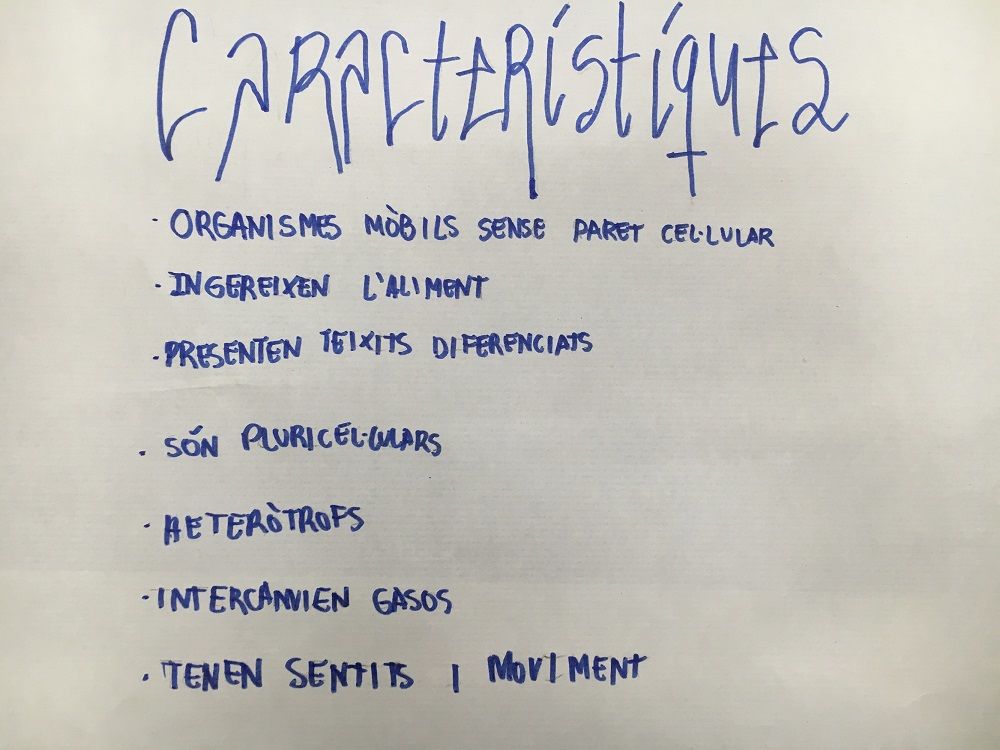 Característíques
· ORGANISMES MÒBILS SENSE PARET CEL·LULAR
· INGEREIXEN L'ALIMENT
· PRESENTEN TEIXITS DIFERENCIATS
· SÓN PLURICEL·LULARS
· HETERÒTROFS
· INTERCANVIEN GASOS
· TENEN SENTITS I MOVIMENT